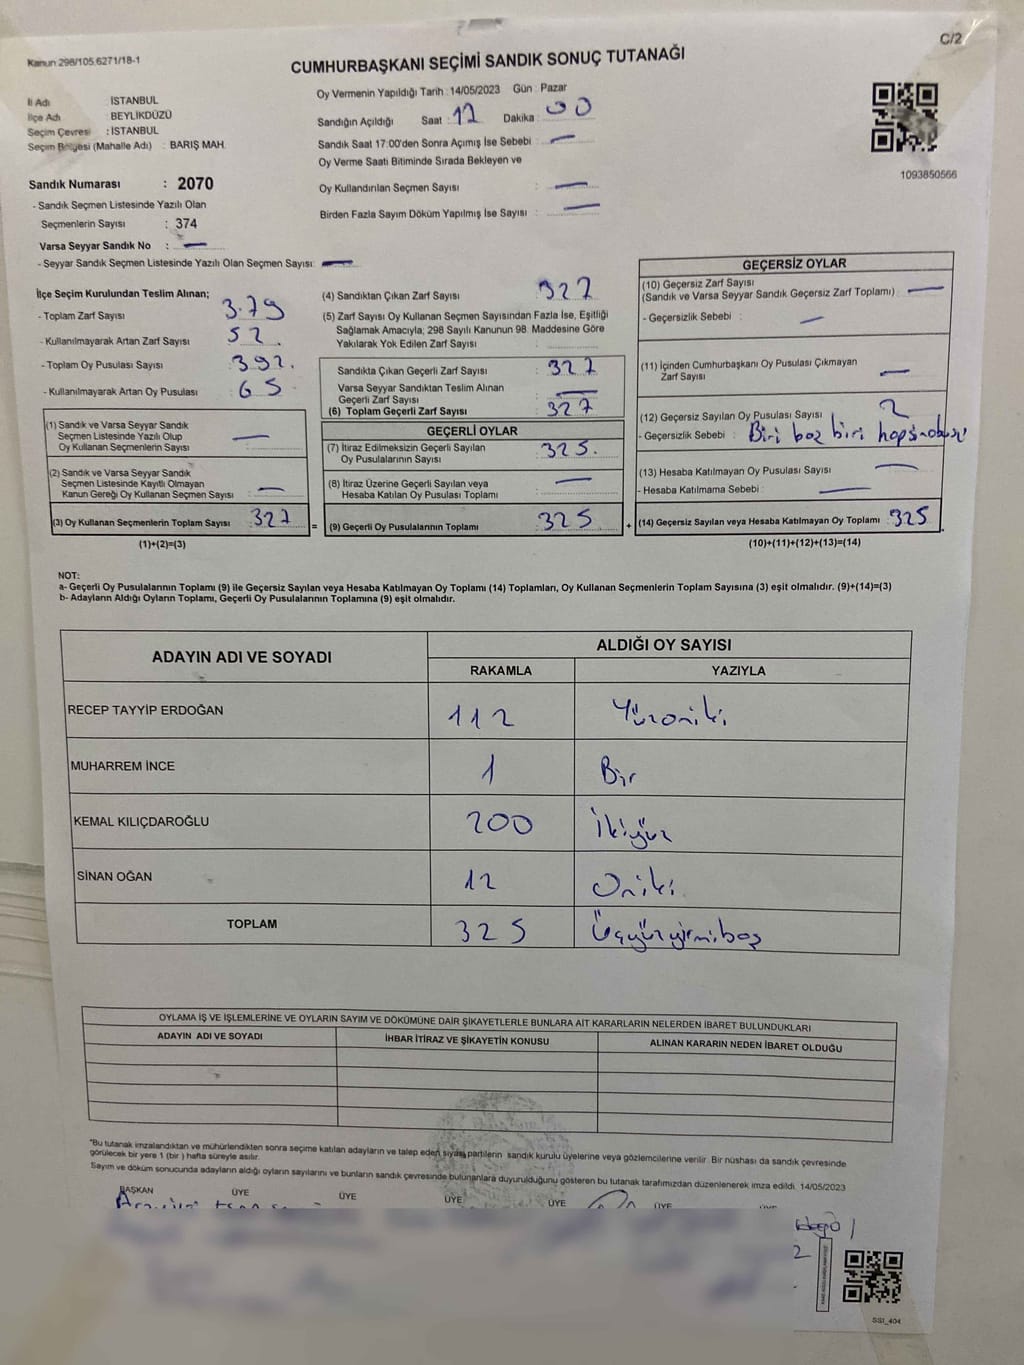 C/2
Kanun 298/105.6271/18-1
CUMHURBAŞKANI SEÇİMİ SANDIK SONUÇ TUTANAĞI
İl Adı : İSTANBUL
İlçe Adı : BEYLİKDÜZÜ
Seçim Çevresi : İSTANBUL
Seçim Bölgesi (Mahalle Adı) : BARIŞ MAH.
Oy Vermenin Yapıldığı Tarih : 14/05/2023 Gün : Pazar
Sandığın Açıldığı Saat : 17 Dakika : 00
Sandık Saat 17:00'den Sonra Açımış İse Sebebi : —
Oy Verme Saati Bitiminde Sırada Bekleyen ve
Oy Kullandırılan Seçmen Sayısı : —
Birden Fazla Sayım Döküm Yapılmış İse Sayısı : —
1093850566
Sandık Numarası : 2070
- Sandık Seçmen Listesinde Yazılı Olan
Seçmenlerin Sayısı : 374
Varsa Seyyar Sandık No : —
- Seyyar Sandık Seçmen Listesinde Yazılı Olan Seçmen Sayısı: —
İlçe Seçim Kurulundan Teslim Alınan;
- Toplam Zarf Sayısı 379
- Kullanılmayarak Artan Zarf Sayısı : 52
- Toplam Oy Pusulası Sayısı : 392.
- Kullanılmayarak Artan Oy Pusulası : 65
(1) Sandık ve Varsa Seyyar Sandık
Seçmen Listesinde Yazılı Olup
Oy Kullanan Seçmenlerin Sayısı : —
(2) Sandık ve Varsa Seyyar Sandık
Seçmen Listesinde Kayıtlı Olmayan
Kanun Gereği Oy Kullanan Seçmen Sayısı : —
(3) Oy Kullanan Seçmenlerin Toplam Sayısı : 327
(1)+(2)=(3)
(4) Sandıktan Çıkan Zarf Sayısı : 327
(5) Zarf Sayısı Oy Kullanan Seçmen Sayısından Fazla İse, Eşitliği
Sağlamak Amacıyla; 298 Sayılı Kanunun 98. Maddesine Göre
Yakılarak Yok Edilen Zarf Sayısı :
Sandıkta Çıkan Geçerli Zarf Sayısı : 327
Varsa Seyyar Sandıktan Teslim Alınan
Geçerli Zarf Sayısı : —
(6) Toplam Geçerli Zarf Sayısı : 327
GEÇERLİ OYLAR
(7) İtiraz Edilmeksizin Geçerli Sayılan
Oy Pusulalarının Sayısı : 325.
(8) İtiraz Üzerine Geçerli Sayılan veya
Hesaba Katılan Oy Pusulası Toplamı : —
= (9) Geçerli Oy Pusulalarının Toplamı : 325
GEÇERSİZ OYLAR
(10) Geçersiz Zarf Sayısı
(Sandık ve Varsa Seyyar Sandık Geçersiz Zarf Toplamı) : —
- Geçersizlik Sebebi : —
(11) İçinden Cumhurbaşkanı Oy Pusulası Çıkmayan
Zarf Sayısı : —
(12) Geçersiz Sayılan Oy Pusulası Sayısı : 2
- Geçersizlik Sebebi : Biri boş biri
(13) Hesaba Katılmayan Oy Pusulası Sayısı : —
- Hesaba Katılmama Sebebi : —
+ (14) Geçersiz Sayılan veya Hesaba Katılmayan Oy Toplamı : 325
(10)+(11)+(12)+(13)=(14)
NOT:
a- Geçerli Oy Pusulalarının Toplamı (9) ile Geçersiz Sayılan veya Hesaba Katılmayan Oy Toplamı (14) Toplamları, Oy Kullanan Seçmenlerin Toplam Sayısına (3) eşit olmalıdır. (9)+(14)=(3)
b- Adayların Aldığı Oyların Toplamı, Geçerli Oy Pusulalarının Toplamına (9) eşit olmalıdır.
ADAYIN ADI VE SOYADI ALDIĞI OY SAYISI
RAKAMLA YAZIYLA
RECEP TAYYİP ERDOĞAN 112 Yüzoniki
MUHARREM İNCE 1 Bir
KEMAL KILIÇDAROĞLU 200 İkiyüz
SİNAN OĞAN 12 Oniki
TOPLAM 325 Üçyüzyirmibeş
OYLAMA İŞ VE İŞLEMLERİNE VE OYLARIN SAYIM VE DÖKÜMÜNE DAİR ŞİKAYETLERLE BUNLARA AİT KARARLARIN NELERDEN İBARET BULUNDUKLARI
ADAYIN ADI VE SOYADI İHBAR İTİRAZ VE ŞİKAYETİN KONUSU ALINAN KARARIN NEDEN İBARET OLDUĞU
*Bu tutanak imzalandıktan ve mühürlendikten sonra seçime katılan adayların ve talep eden siyasi partilerin sandık kurulu üyelerine veya gözlemcilerine verilir. Bir nüshası da sandık çevresinde
görülecek bir yere 1 (bir ) hafta süreyle asılır.
Sayım ve döküm sonucunda adayların aldığı oyların sayılarını ve bunların sandık çevresinde bulunanlara duyurulduğunu gösteren bu tutanak tarafımızdan düzenlenerek imza edildi. 14/05/2023
BAŞKAN ÜYE ÜYE ÜYE ÜYE ÜYE
SSI_404